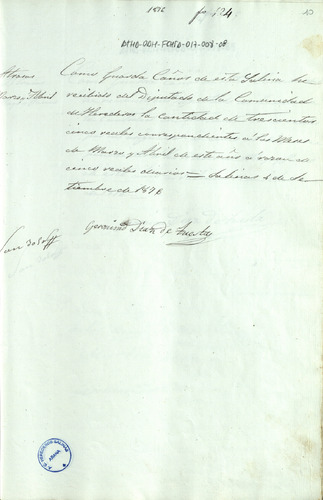 1876
ATHA-DAH-FOND-017-008-08
Marzo y Abril
Como Guarda Caños de esta Salina he
recibido del Diputado de la Comunidad
de Herederos la cantidad de trescientos
cinco reales correspondientes á los Meses
de Marzo y Abril de este año á razon de
cinco reales diarios = Salinas 4 de Se-
tiembre de 1876
Son 305